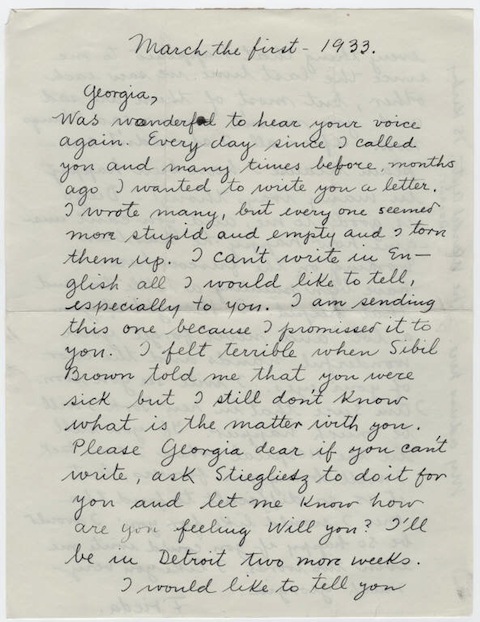 March the first - 1933.
Georgia,
Was wonderful to hear your voice
again. Every day since I called
you and many times before, months
ago I wanted to write you a letter.
I wrote many, but every one seemed
more stupid and empty and I torn
them up. I can't write in En-
glish all I would like to tell,
especially to you. I am sending
this one because I promissed it to
you. I felt terrible when Sibil
Brown told me that you were
sick but I still don't know
what is the matter with you.
Please Georgia dear if you can't
write, ask Stieglisz to do it for
you and let me know how
are you feeling Will you? I'll
be in Detroit two more weeks.
I would like to tell you